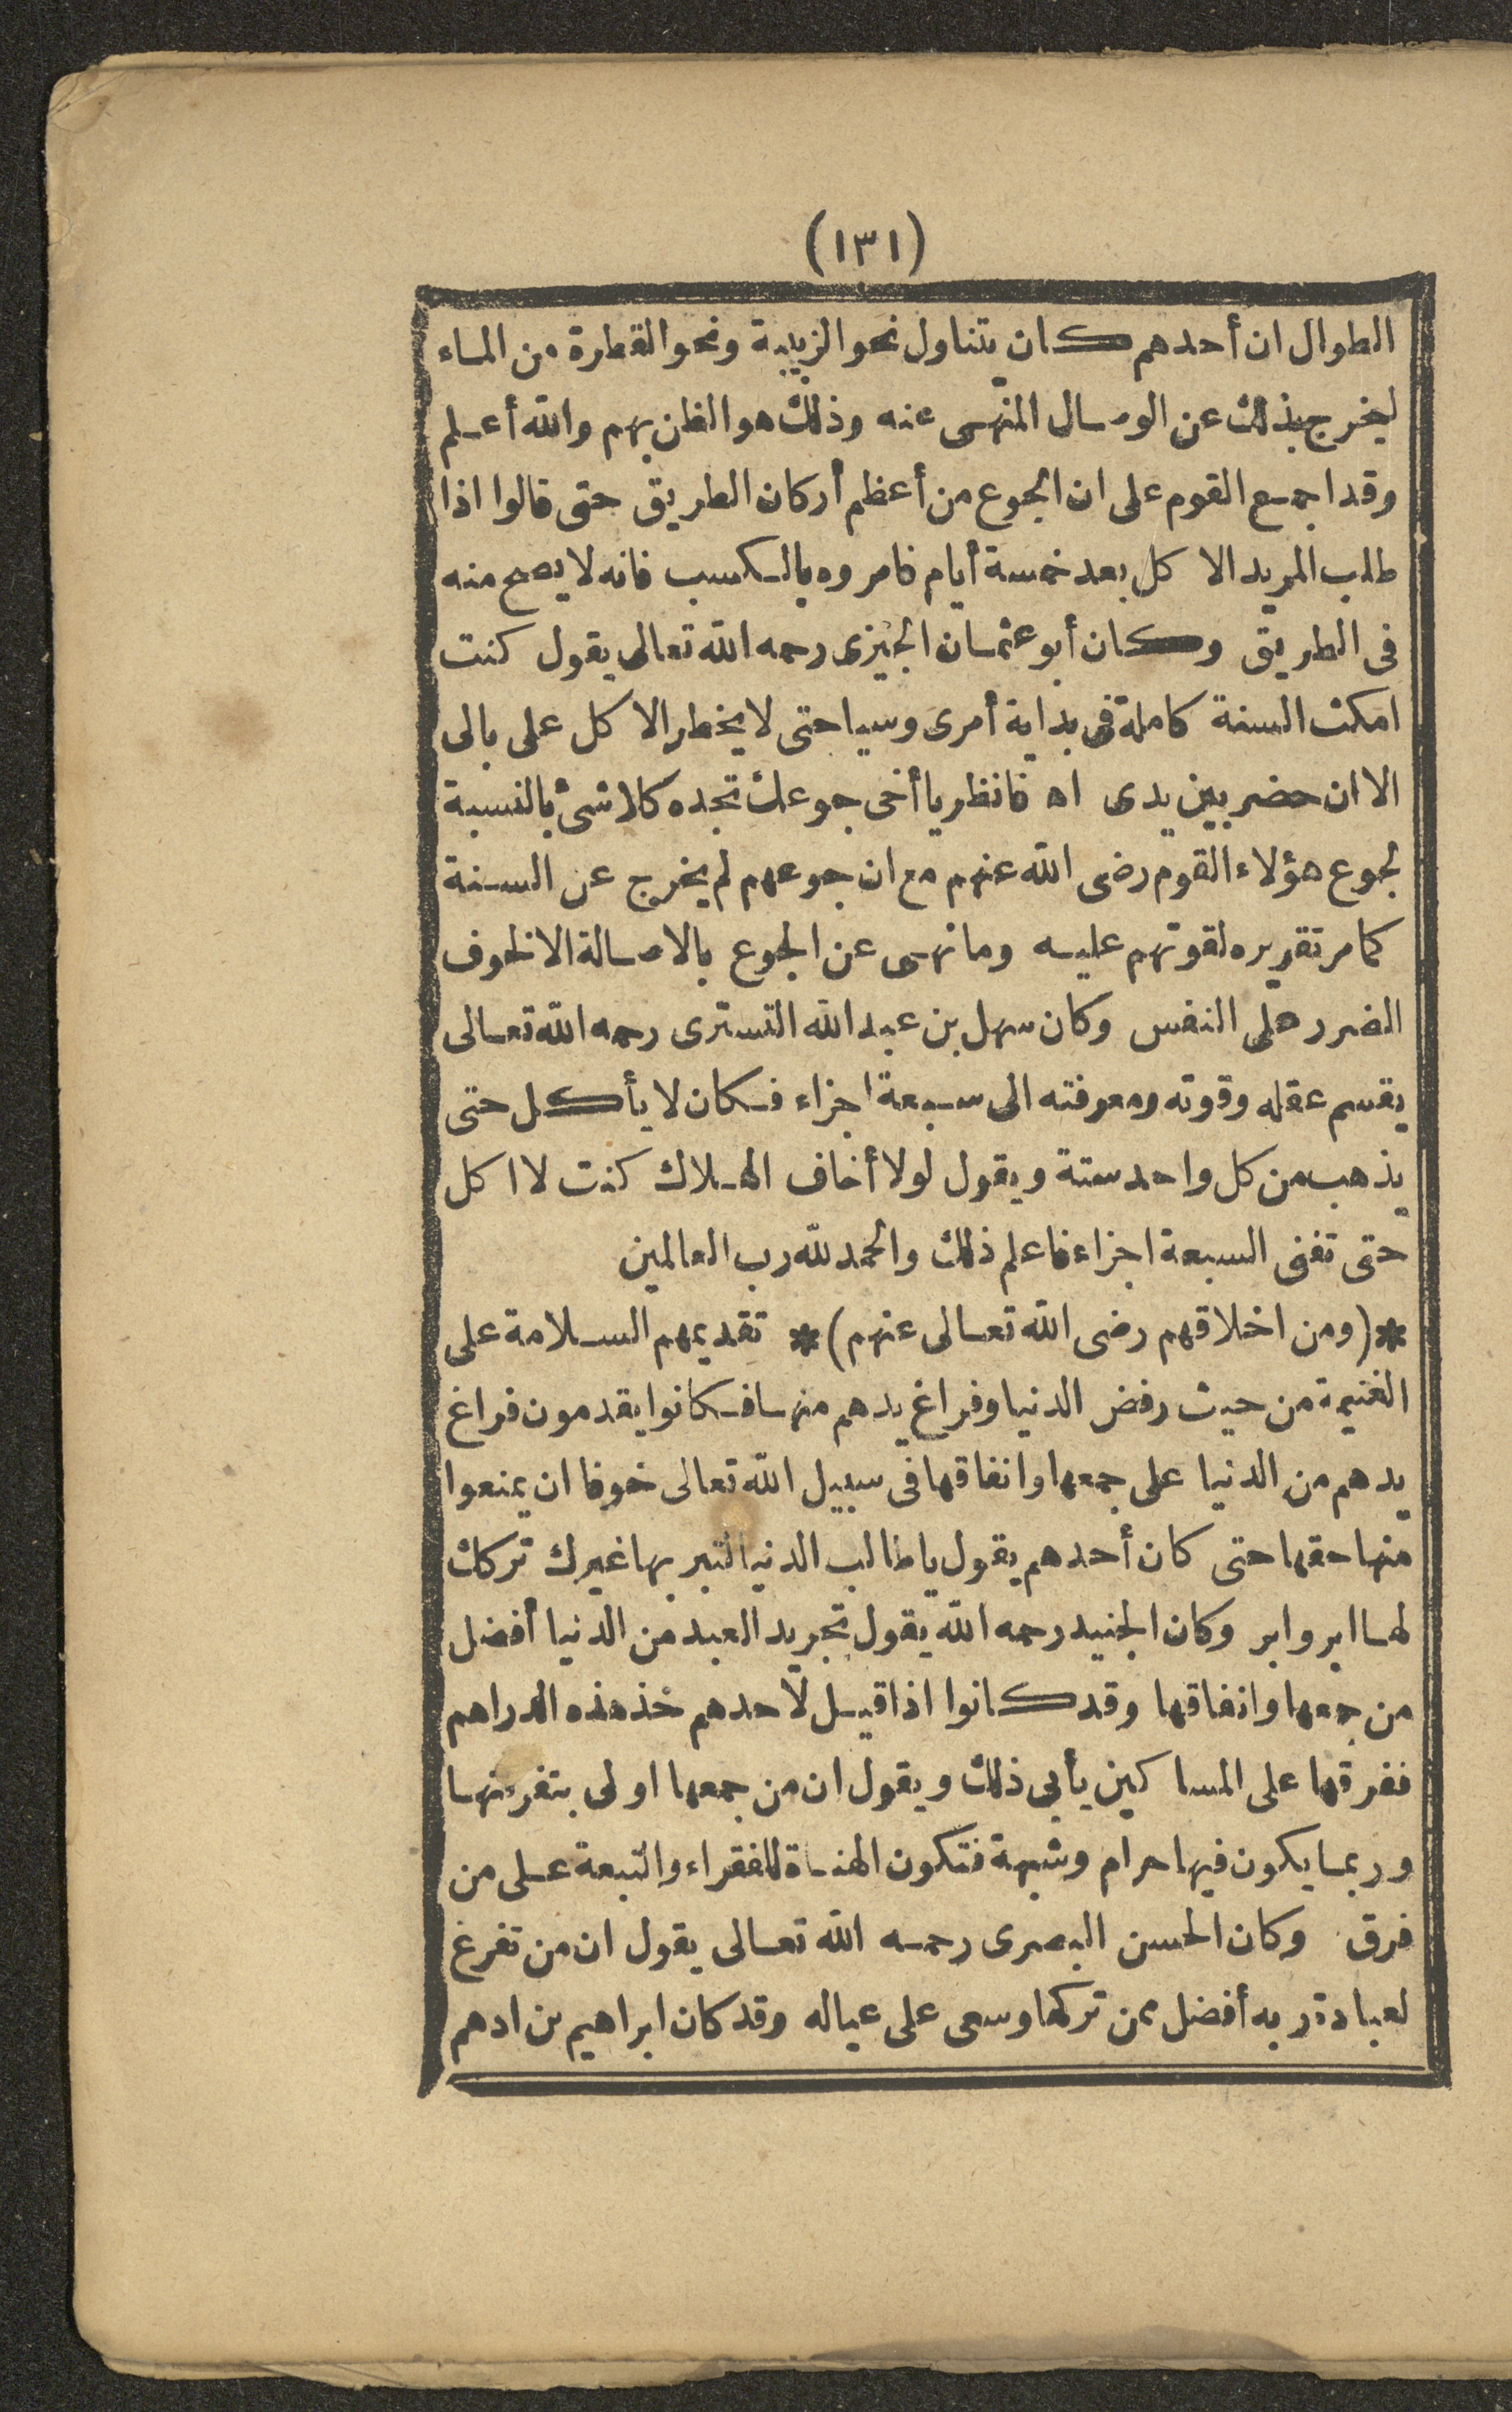 (١٣١)
الطوال ان أحدهم كان يتناول نحو الزبيبة ونحو القطرة من الماء
ليخرج بذلك عن الوصال المنهى عنه وذلك هو الظن بهم والله أعلم
وقد اجمع القوم على ان الجوع من أعظم أركان الطريق حتى قالوا اذا
طلب المريد الاكل بعد خمسة أيام فامروه بالكسب فانه لا يصح منه
فى الطريق وكان أبو عثمان الجيزى رحمه الله تعالى يقول كنت
امكث السنة كاملة فى بداية أمرى وسياحتى لا يخطر الاكل على بالى
الا ان حضر بين يدى اه فانظر يا أخى جوعك تجده كلا شئ بالنسبة
لجوع هؤلاء القوم رضى الله عنهم مع ان جوعهم لم يخرج عن السنة
كما مر تقريره لقوتهم عليه وما نهى عن الجوع بالاصالة الا لخوف
الضرر على النفس وكان سهل بن عبد الله التسترى رحمه الله تعالى
يقسم عقله وقوته ومعرفته الى سبعة اجزاء فكان لا يأكل حتى
يذهب من كل واحد ستة ويقول لولا أخاف الهلاك كنت لا اكل
حتى تفنى السبعة اجزاء فاعلم ذلك والحمد لله رب العالمين
*(ومن اخلاقهم رضى الله تعالى عنهم)* تقديمهم السلامة على
الغنيمة من حيث رفض الدنيا وفراغ يدهم منها فكانوا يقدمون فراغ
يدهم من الدنيا على جمعها وانفاقها فى سبيل الله تعالى خوفا ان يمنعوا
منها حقها حتى كان أحدهم يقول يا طالب الدنيا لتبر بها غيرك تركك
لها ابر وابر وكان الجنيد رحمه الله يقول تجريد العبد من الدنيا أفضل
من جمعها وانفاقها وقد كانوا اذا قيل لاحدهم خذ هذه الدراهم
ففرقها على المساكين يأبى ذلك ويقول ان من جمعها اولى بتفرقتها
وربما يكون فيها حرام وشبهة فتكون الهناة للفقراء والتبعة على من
فرق وكان الحسن البصرى رحمه الله تعالى يقول ان من تفرغ
لعبادة ربه أفضل ممن تركها وسعى على عياله وقد كان ابراهيم بن ادهم